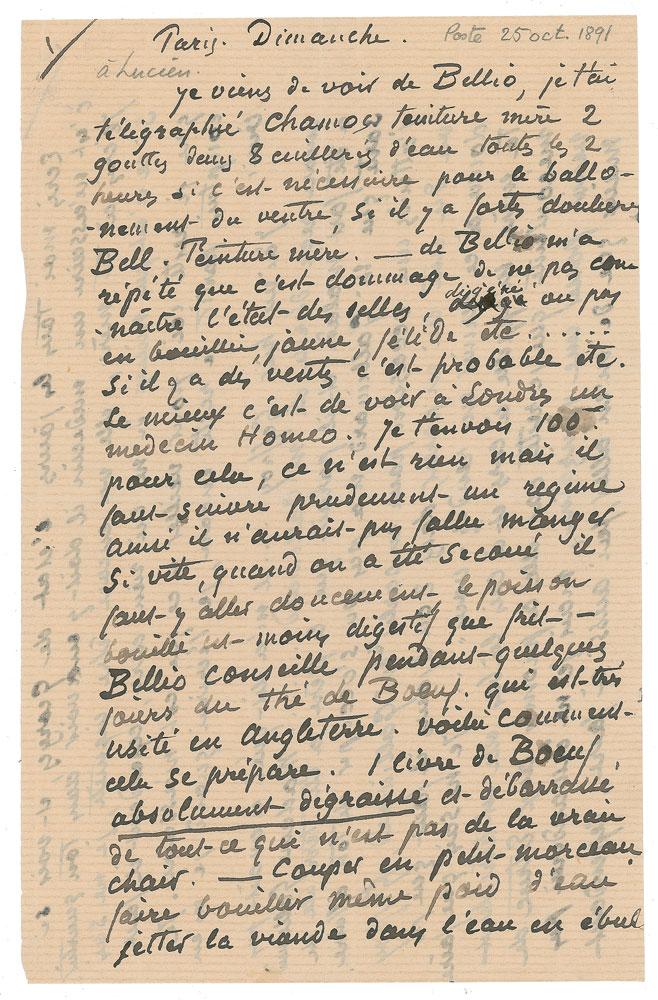 Paris. Dimanche. Poste 25 oct. 1891
à Lucien.
Je viens de voir de Bellio, je t'ai
télégraphié Chamos teinture mère 2
gouttes dans 8 cuillères d'eau toutes les 2
heures si c'est nécessaire pour le ballo-
-nement du ventre, si il y a fortes douleurs
Bell. Teinture mère. — de Bellio m'a
répété que c'est dommage de ne pas con
-naître l'état des selles, digéré ou pas
en bouillie, jaune, fétide etc......
si il y a des vents c'est probable etc.
Le mieux c'est de voir à Londres un
medecin Homeo. Je t'envois 100
pour cela, ce n'est rien mais il
faut suivre prudemment un regime
ainsi il n'aurait pas fallu manger
si vite, quand on a été secoué il
faut y aller doucement le poisson
bouilli est moins digestif que frit —
Bellio conseille pendant quelques
jours du thé de Boeuf. qui est très
usité en Angleterre. voilà comment
cela se prépare. 1 livre de Boeuf
absolument dégraissé et débarrassé
de tout ce qui n'est pas de la vraie
chair. — Couper en petit morceau
faire bouillir même poid d'eau
jetter la viande dans l'eau en ébul